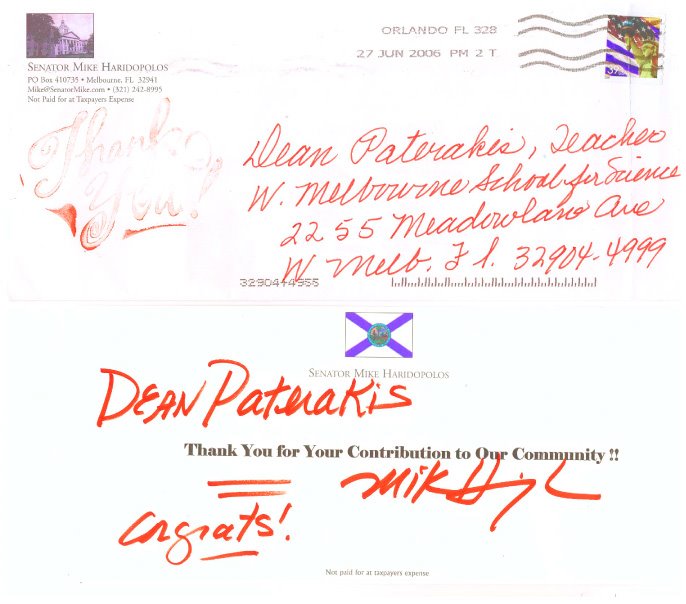 ORLANDO FL 328
27 JUN 2006 PM 2 T
SENATOR MIKE HARIDOPOLOS
PO Box 410735 • Melbourne, FL 32941
Mike@SenatorMike.com • (321) 242-8995
Not Paid for at Taxpayers Expense
Thank
You!
Dean Paterakis, Teacher
W. Melbourne School for Science
2255 Meadowlane Ave
W Melb. Fl. 32904-4999
32904+4955
SENATOR MIKE HARIDOPOLOS
DEAN Paterakis
Thank You for Your Contribution to Our Community !!
Congrats!
Not paid for at taxpayers expense